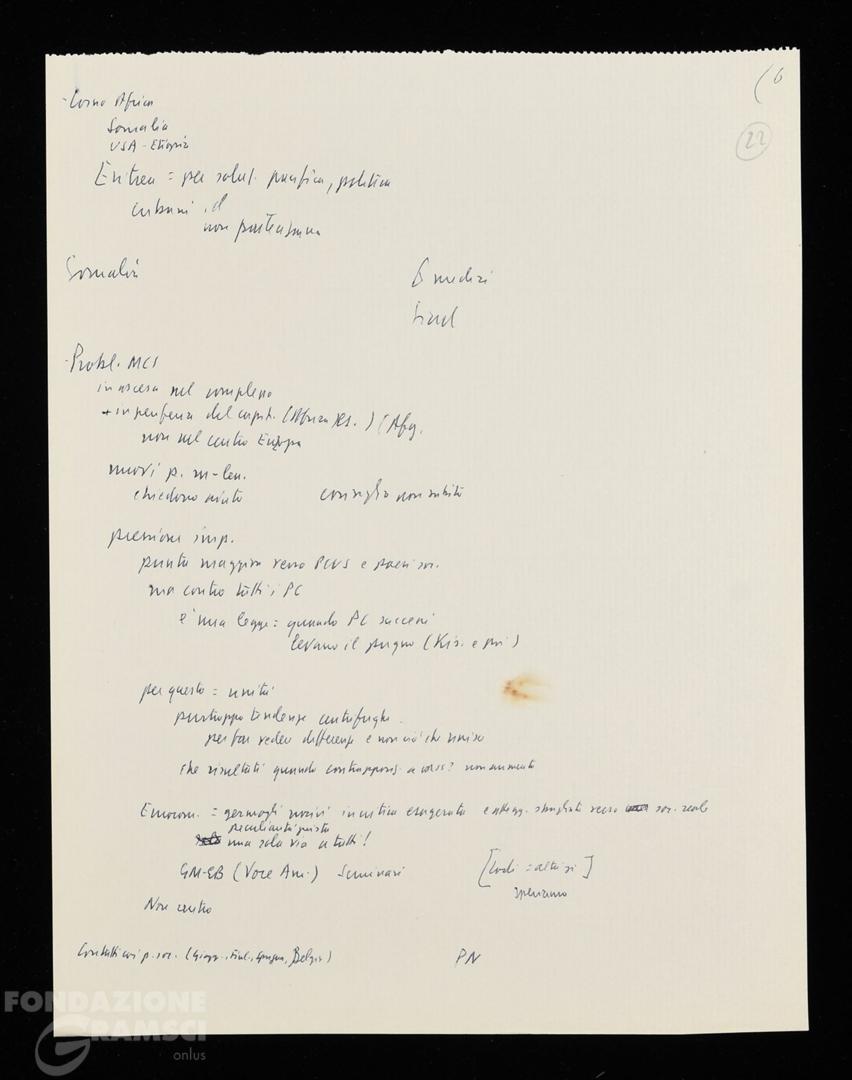 (6
22
- Corno Africa
Somalia
USA - Etiopia
Eritrea = per soluz. pacifica, politica
cubani id
non partecipano
Somalia
6 medici
Siad
- Probl. MCI
in ascesa nel complesso
+ in periferia del capit. (Afg.
non nel centro Europa
nuovi p. m-len.
chiedono aiuto consiglio non subito
pressione imp.
punta maggiore verso PCUS e paesi soc.
ma contro tutti i PC
e' una legge = quando PC successi
levano il pugno (Kis. e poi)
per questo = unità
purtroppo tendenze centrifughe
per far vedere differenze e non ciò che unisce
che risultati quando contrappos. a voss? non aumento
Eurocom. = germogli nocivi in critica esagerata e attegg. sbagliati verso soc. reale
peculiarità giusto
una sola via a tutti!
GM-EB (Voce Am.) Seminari [
speriamo
Non centro
Contatti coi p. soc. (Giapp., Finl., Spagna, Belgio) PN
FONDAZIONE
GRAMSCI
onlus